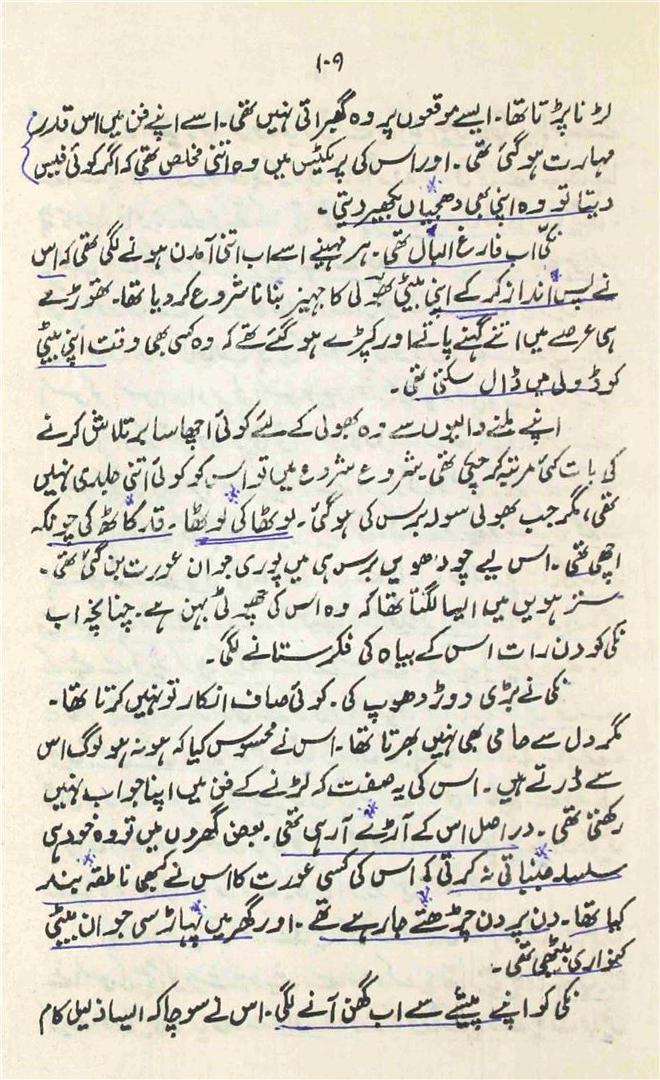 ۱۰۹
لڑنا پڑتا تھا۔ ایسے موقعوں پر وہ گھبراتی نہیں تھی۔ اسے اپنے فن میں اس قدر
مہارت ہو گئی تھی۔ اور اس کی پریکٹس میں وہ اتنی مخلص تھی کہ اگر کوئی فیس
دیتا تو وہ اپنی بھی دھجیاں بکھیر دیتی۔
نکی اب فارغ البال تھی۔ ہر مہینے اسے اب اتنی آمدن ہونے لگی تھی کہ اس
نے پس انداز کر کے اپنی بیٹی بھولی کا جہیز بنانا شروع کر دیا تھا۔ تھوڑے
ہی عرصے میں اتنے گہنے پاتے اور کپڑے ہو گئے تھے کہ وہ کسی بھی وقت اپنی بیٹی
کو ڈولی میں ڈال سکتی تھی۔
اپنے ملنے والیوں سے وہ بھولی کے لئے کوئی اچھا سا بر تلاش کرنے
کی بات کئی مرتبہ کر چکی تھی۔ شروع شروع میں تو اس کو کوئی اتنی جلدی نہیں
تھی، مگر جب بھولی سولہ برس کی ہو گئی۔ لوٹھا کی لوٹھا۔ قد کاٹھ کی چونکہ
اچھی تھی۔ اس لیے چودھویں برس ہی میں پوری جوان عورت بن گئی تھی۔
سترھویں میں ایسا لگتا تھا کہ وہ اس کی چھوٹی بہن ہے۔ چنانچہ اب
نکی کو دن رات اس کے بیاہ کی فکر ستانے لگی۔
نکی نے بڑی دوڑ دھوپ کی۔ کوئی صاف انکار تو نہیں کرتا تھا۔
مگر دل سے حامی بھی نہیں بھرتا تھا۔ اس نے محسوس کیا کہ ہو نہ ہو لوگ اس
سے ڈرتے ہیں۔ اس کی یہ صفت کہ لڑنے کے فن میں اپنا جواب نہیں
رکھتی تھی۔ دراصل اس کے آڑے آ رہی تھی۔ بعض گھروں میں تو وہ خود ہی
سلسلہ جنبانی نہ کرتی کہ اس کی کسی عورت کا اس نے کبھی ناطقہ بند
کیا تھا۔ دن پر دن چڑھتے جا رہے تھے۔ اور گھر میں پہاڑ سی جوان بیٹی
کنواری بیٹھی تھی۔
نکی کو اپنے پیشے سے اب گھن آنے لگی۔ اس نے سوچا کہ ایسا ذلیل کام